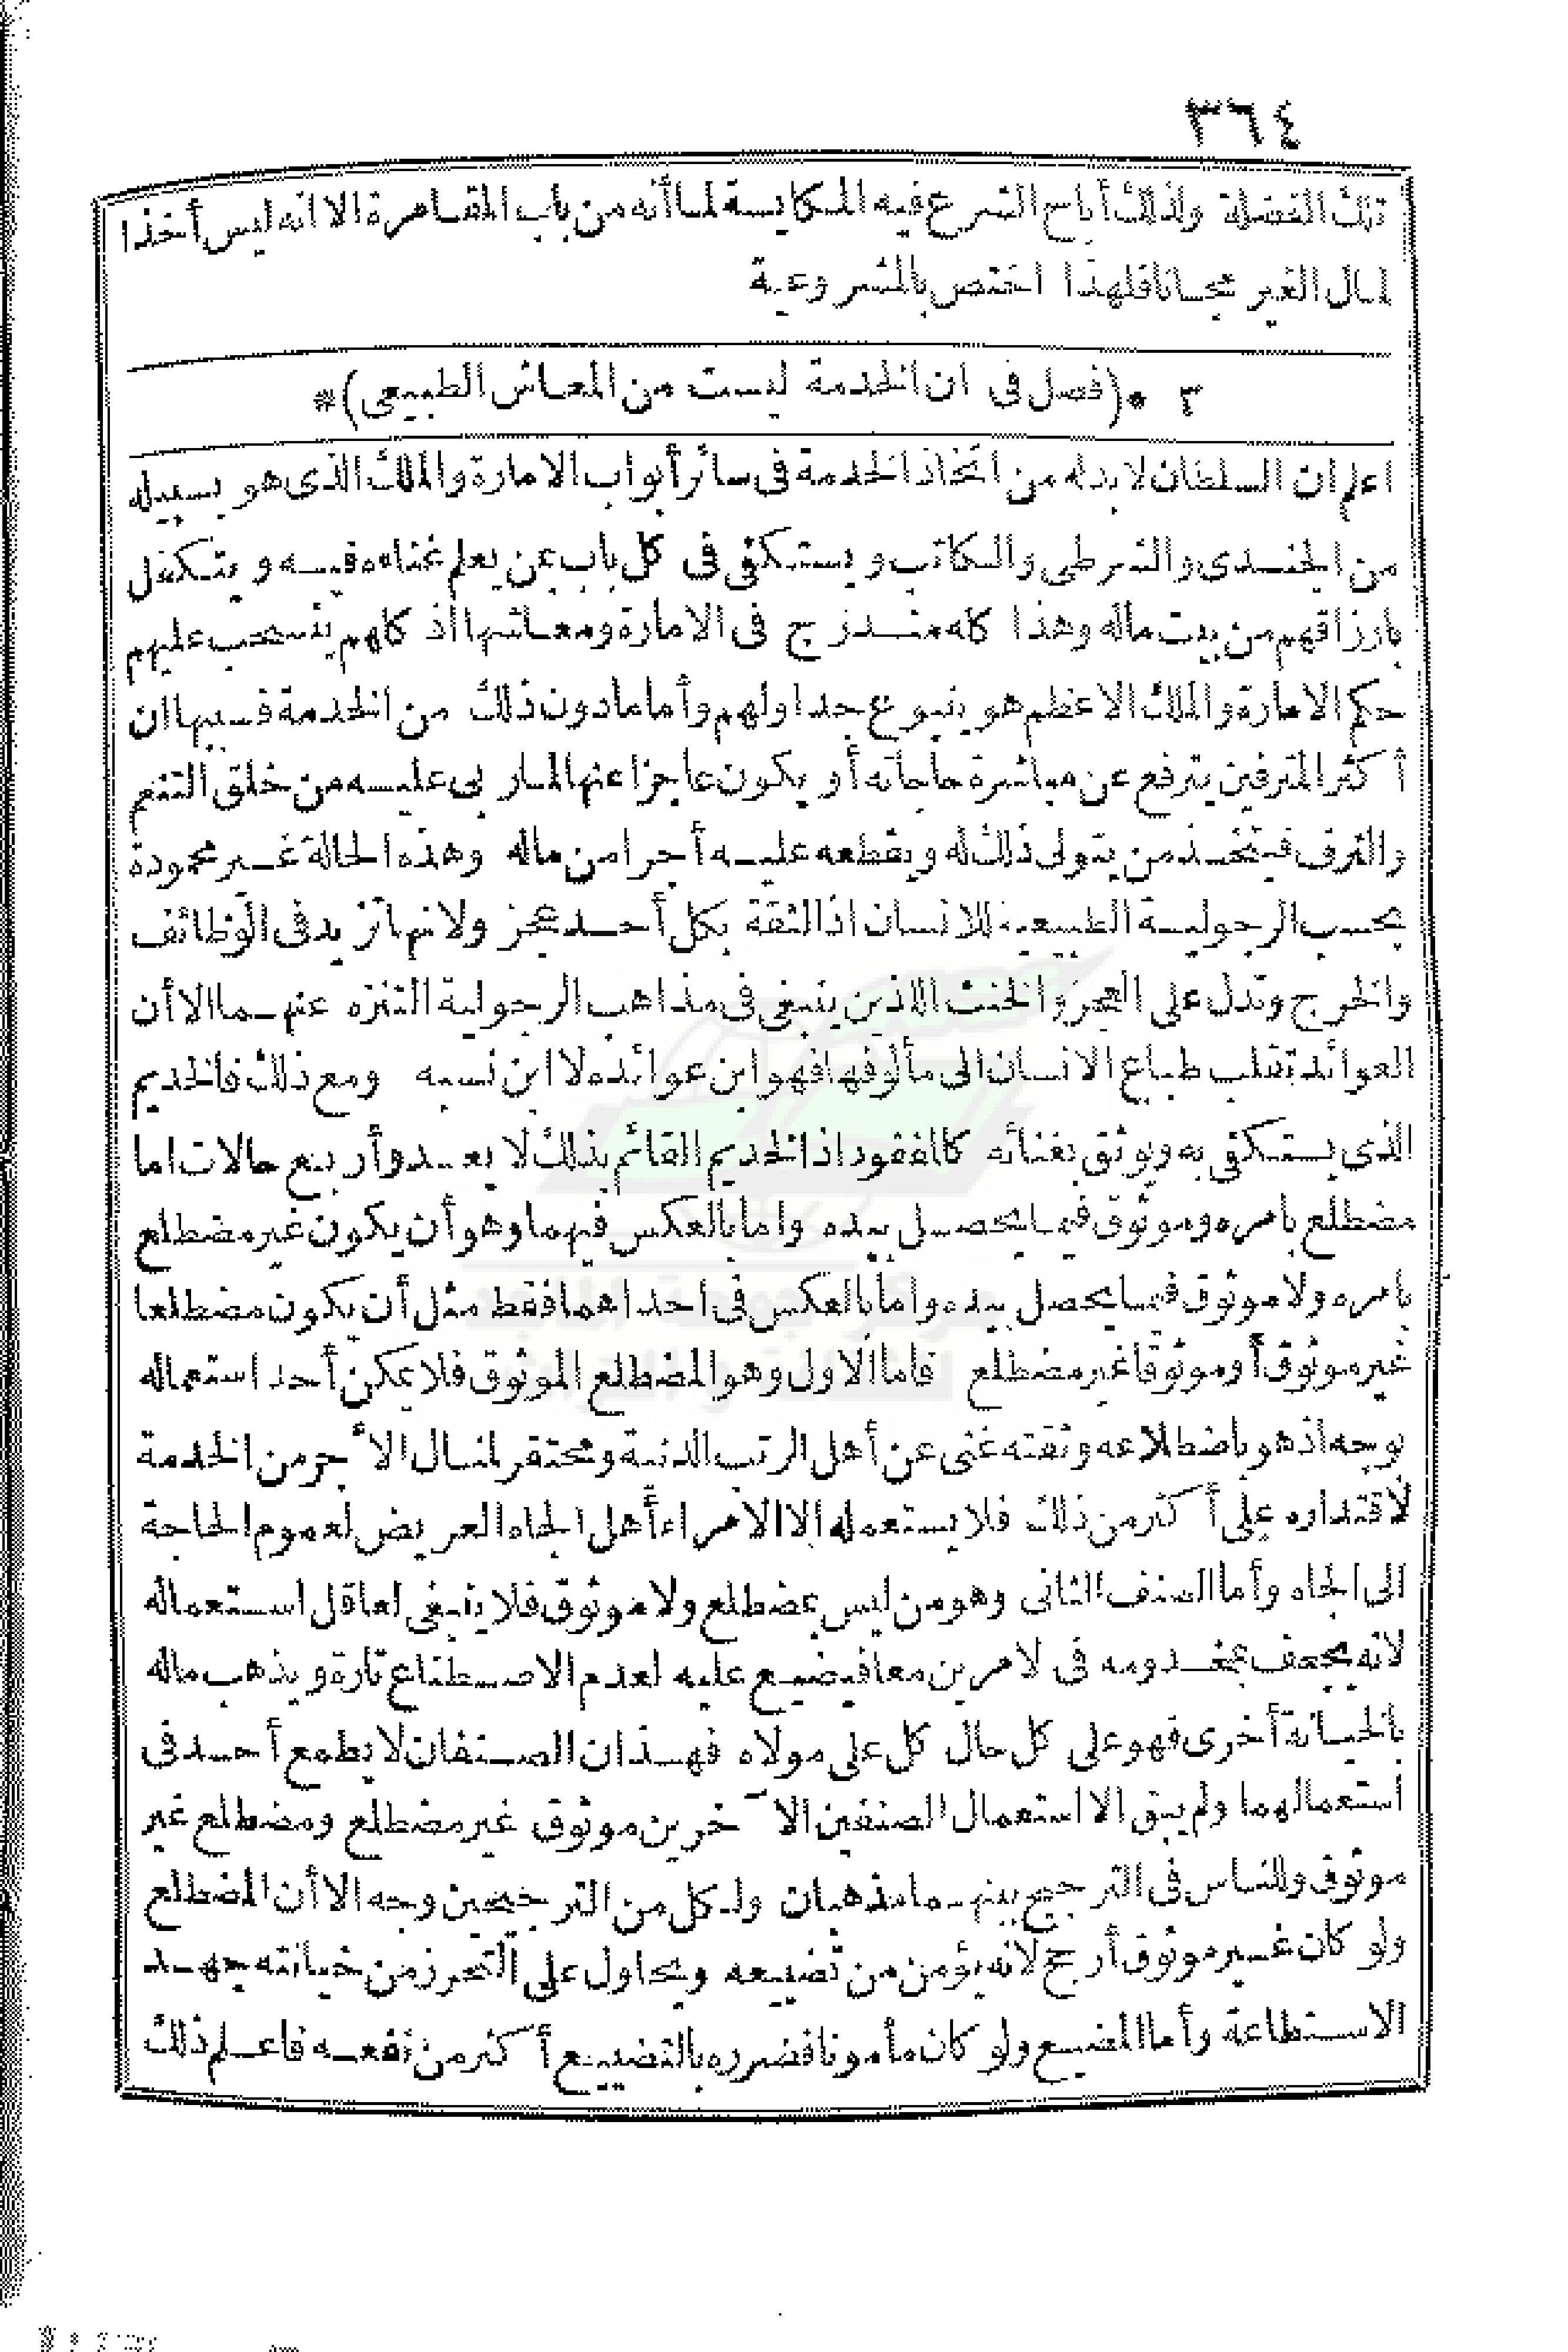 ٣٦٤
تلك الفضلة ولذلك أباح الشرع فيه المكايسة لما أنه من باب المقامرة الا انه ليس أخذا
لمال الغير مجانا فلهذا اختص بالمشروعية
٣ *(فصل فى ان الخدمة ليست من المعاش الطبيعى)*
اعلم ان السلطان لا بد له من اتخاذ الخدمة فى سائر أبواب الامارة والملك الذى هو بسبيله
من الجندى والشرطى والكاتب ويستكفى فى كل باب بمن يعلم غناءه فيه ويتكفل
بارزاقهم من بيت ماله وهذا كله مندرج فى الامارة ومعاشها اذ كلهم ينسحب عليهم
حكم الامارة والملك الاعظم هو ينبوع جداولهم وأما ما دون ذلك من الخدمة فسببها ان
أكثر المترفين يترفع عن مباشرة حاجاته أو يكون عاجزا عنها لما ربى عليه من خلق التنعم
والترف فيتخذ من يتولى ذلك له ويقطعه عليه أجرا من ماله وهذه الحالة غير محمودة
بحسب الرجولية الطبيعية للانسان اذ الثقة بكل أحد عجز ولانها تزيد فى الوظائف
والخرج وتدل على العجز والخنث اللذين ينبغى فى مذاهب الرجولية التنزه عنهما الا أن
العوائد تقلب طباع الانسان الى مألوفها فهو ابن عوائده لا ابن نسبه ومع ذلك فالخديم
الذى يستكفى به ويوثق بغنائه كالمفقود اذ الخديم القائم بذلك لا يعدو أربع حالات اما
مضطلع بامره وموثوق فيما يحصل بيده واما بالعكس فيهما وهو أن يكون غير مضطلع
بامره ولا موثوق فيما يحصل بيده واما بالعكس فى احداهما فقط مثل أن يكون مضطلعا
غير موثوق أو موثوقا غير مضطلع فاما الاول وهو المضطلع الموثوق فلا يمكن أحد استعماله
بوجه اذ هو باضطلاعه وثقته غنى عن أهل الرتب الدنية ومحتقر لمنال الأجر من الخدمة
لاقتداره على أكثر من ذلك فلا يستعمله الا الامراء أهل الجاه العريض لعموم الحاجة
الى الجاه وأما الصنف الثانى وهو من ليس بمضطلع ولا موثوق فلا ينبغى لعاقل استعماله
لانه يجحف بمخدومه فى لامرين معا فيضيع عليه لعدم الاصطناع تارة ويذهب ماله
بالخيانة أخرى فهو على كل حال كل على مولاه فهذان الصنفان لا يطمع أحد فى
استعمالهما ولم يبق الا استعمال الصنفين الآخرين موثوق غير مضطلع ومضطلع غير
موثوق وللناس فى الترجيح بينهما مذهبان ولكل من الترجيحين وجه الا أن المضطلع
ولو كان غير موثوق أرجح لانه يؤمن من تضييعه ويحاول على التحرز من خيانته جهد
الاستطاعة وأما المضيع ولو كان مأمونا فضرره بالتضييع أكثر من نفعه فاعلم ذلك